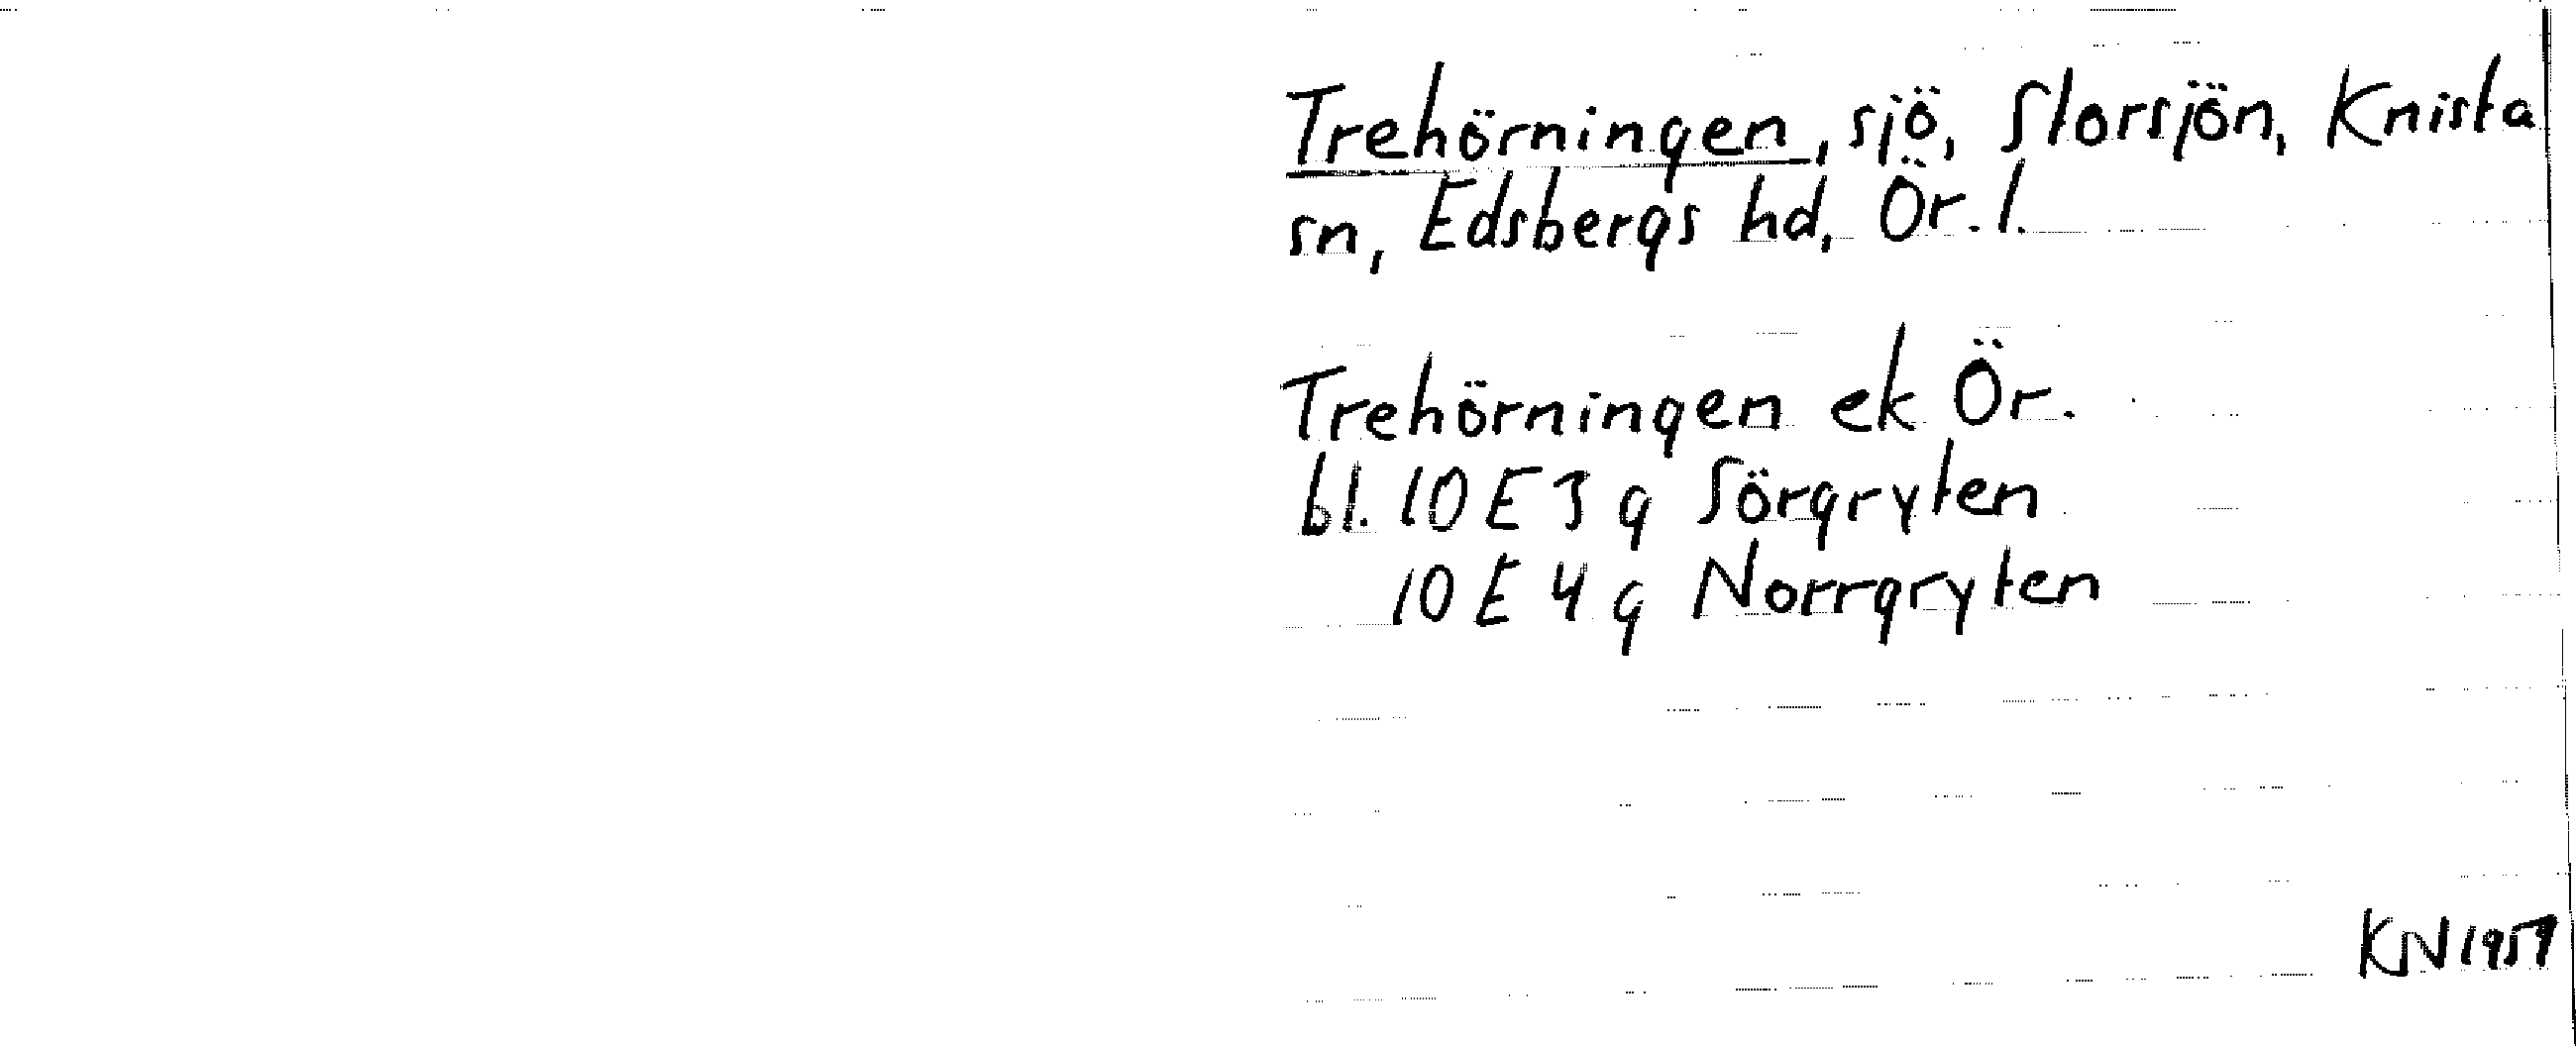 Trehörningen, sjö, Storsjön, Knista
sn, Edsbergs hd, Ör. l.
Trehörningen ek Ör.
bl. 10 E 3 g Sörgryten
10 E 4 g Norrgryten
KN 1957